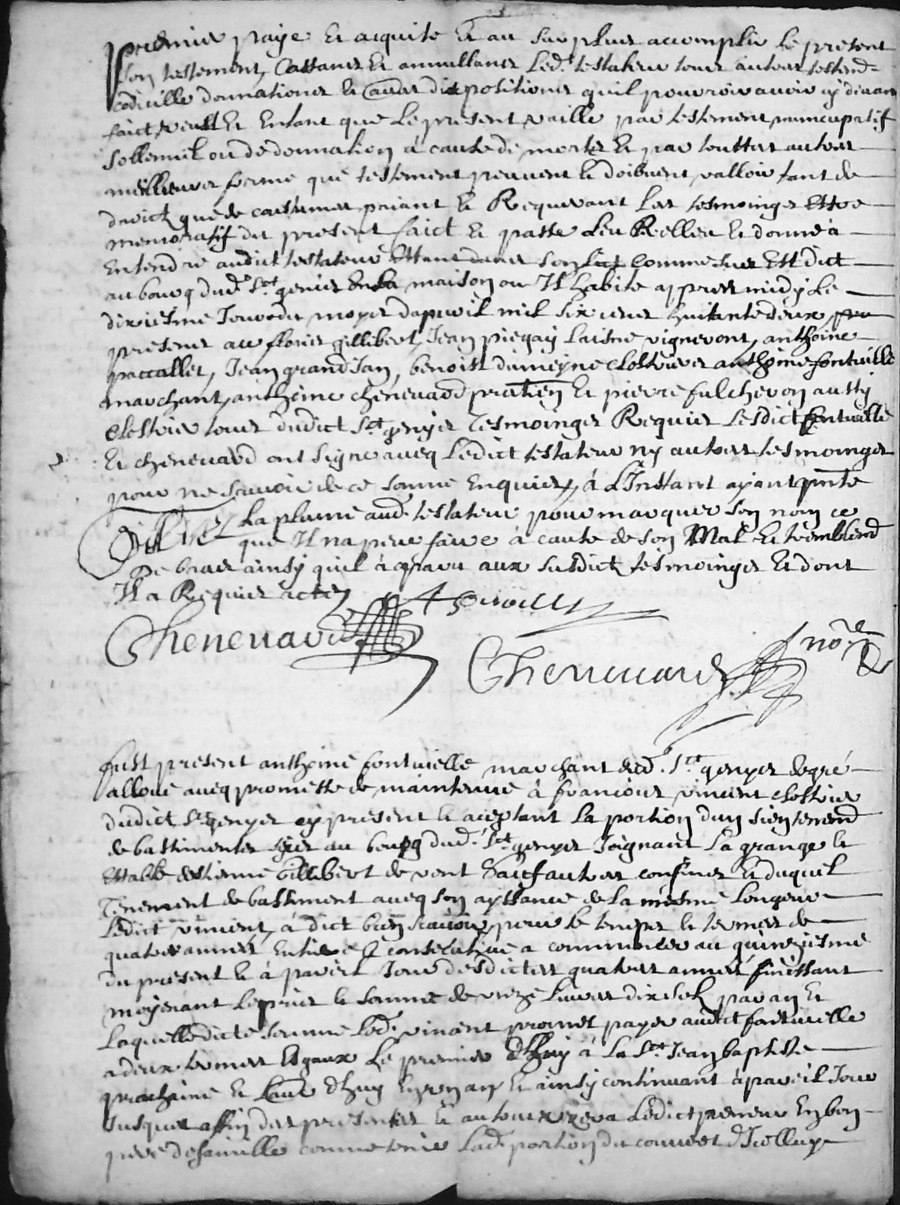 premier paye et acquite et au surplus accomplir le present
son testement, Cassant et annullant led. testateur tous autres testem=
codicille donnations et autres dispositions quil pourroit avoir cy devant
faict veult et Entant que le present vaille par testement nuncupatif
sollemnel ou de donnation a cause de mort et par touttes autres
meillieures forme que testement peuvent et doibvent valloir tant de
droict que de coustume priant et Requerant les tesmoings estre
memoratif du present faict et passé leu Relleu et donné à
Entendre audit testateur estant dans son lict comme sus Est dict
au bourg dud. St genier En la maison ou Il habite appres midy le
dixiesme Jour du moys dapvril mil six cens huitante deux
present au floris gillibert, Jean piegay laisne vigneront, anthoine
paccallet, Jean grand Jan, benoist dumeyne clostrier anthoine fontvielle
marchant, anthoine chenevard praticien et pierre fulcheron aussy
clostrier tous dudict St genyer Tesmoings Requier Lesdict fontvielle
Et chenevard ont signe avecq Ledict testateur ny autres tesmoings
pour ne scavoir de ce somme Enquier, à L'Instant ayant pnté
la plume aud. testateur pour marquer son nom ce
que Il na peu faire à cause de son Mal et tremblemt
De bras ainsy quil à aparu aux susdict tesmoings Et dont
Il a Requier acte
Chenevard
Chenevard nore
fust present anthoine fontvielle marchant dud. St genyer de gré
alloué avecq promesse de maintenir à francois vincent clostrier
dudict St genyer cy present et aceptant la portion dun sien tenemt
de bastiments sizes au bourg dud. St genyer Joignant La grange et
Estable destienne gillibert de vent sauf autres confins Et duquel
Tenement de bastiment avecq son ayssance de la mesme longeur
Ledict vincent, à dict bien scavoir, pour le temps et termes de
quatres annees Entiere & consecutive a commencer au quinziesme
du present et à pareil Jour desdictes quatres annees finissant
moyenant le prix et somme de unze livres dix solz par an Et
Laquelledicte somme led. vincent promet payer audict fontvielle
a deux termes Esgaux le premier d'huy à la St Jean baptiste
prochaine Et lautre dhuy En un an Et ainsy continuant à pareil Jour
Jusques affin des presentes Et autour Ledict preneur En bon
pere de famille comme tenir Lad. portion du couvert d'Icelluy